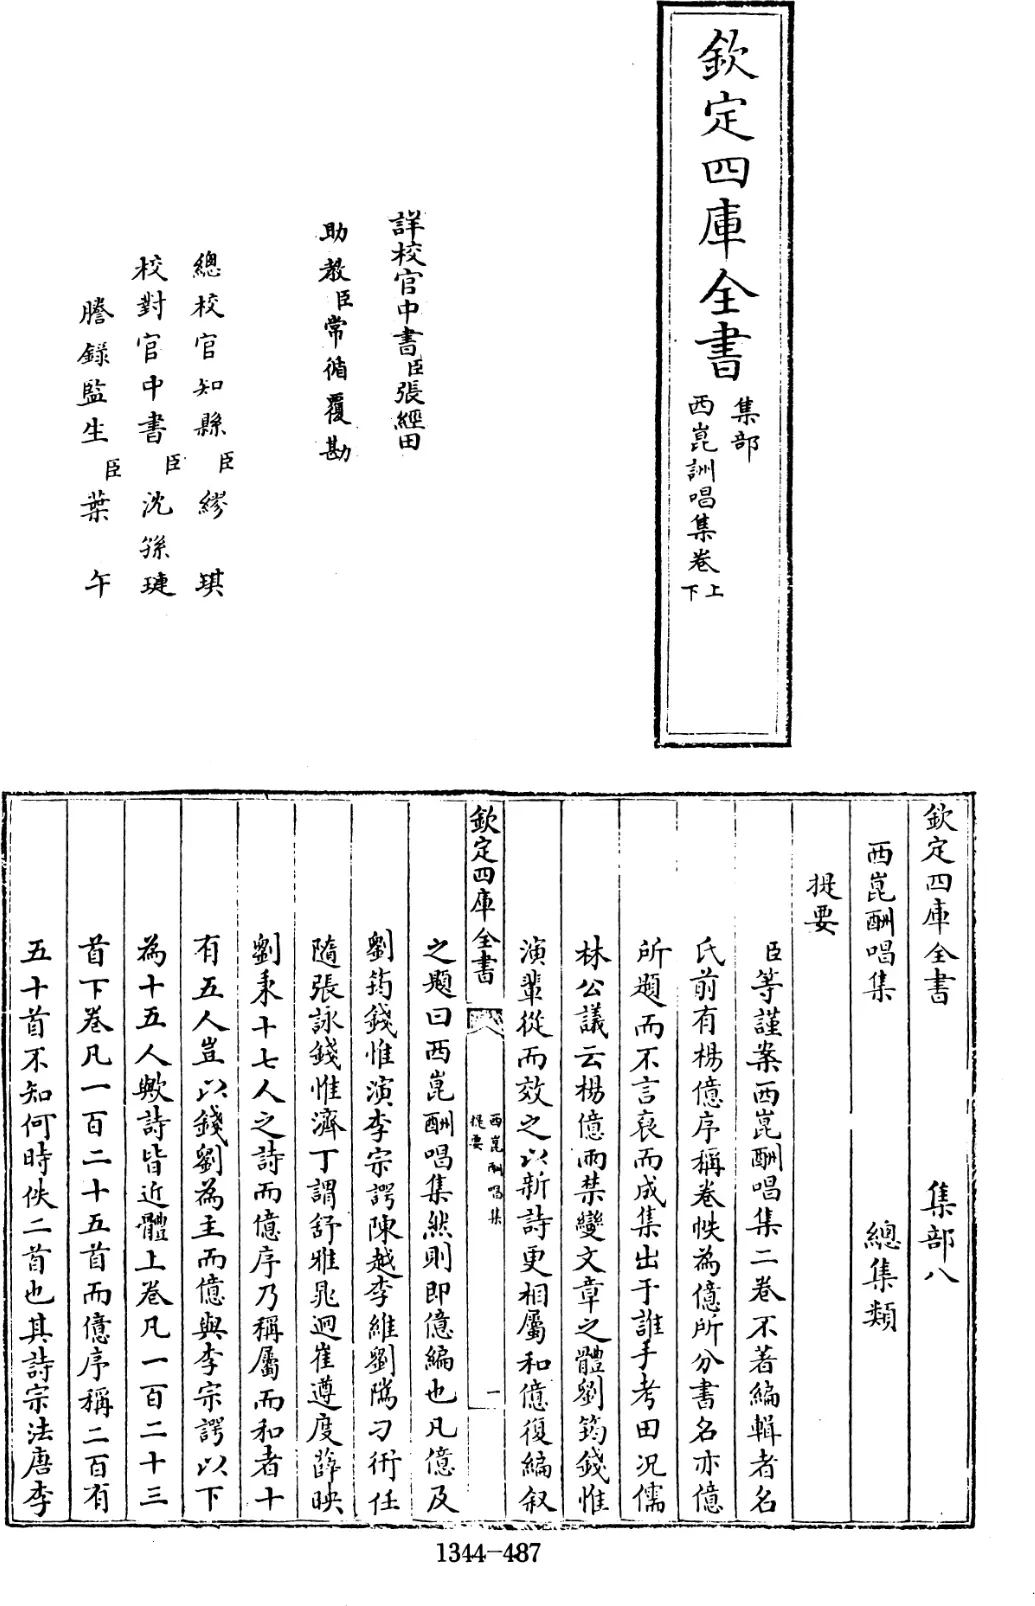 欽定四庫全書
集部
西崑詶唱集卷上下
詳校官中書臣張經田
助教臣常循覆勘
總校官知縣臣繆琪
校對官中書臣沈孫璉
謄錄監生臣葉午
欽定四庫全書 集部八
西崑酬唱集 總集類
提要
臣等謹案西崑酬唱集二卷不著編輯者名
氏前有楊億序稱卷帙為億所分書名亦億
所題而不言裒而成集出于誰手考田況儒
林公議云楊億兩禁變文章之體劉筠錢惟
演輩從而效之以新詩更相屬和億復編叙
欽定四庫全書
西崑酬唱集
提要
一
之題曰西崑酬唱集然則即億編也凡億及
劉筠錢惟演李宗諤陳越李維劉隲刁衎任
隨張詠錢惟濟丁謂舒雅晁迥崔遵度薛映
劉秉十七人之詩而億序乃稱屬而和者十
有五人豈以錢劉為主而億與李宗諤以下
為十五人歟詩皆近體上卷凡一百二十三
首下卷凡一百二十五首而億序稱二百有
五十首不知何時佚二首也其詩宗法唐李
1344-487